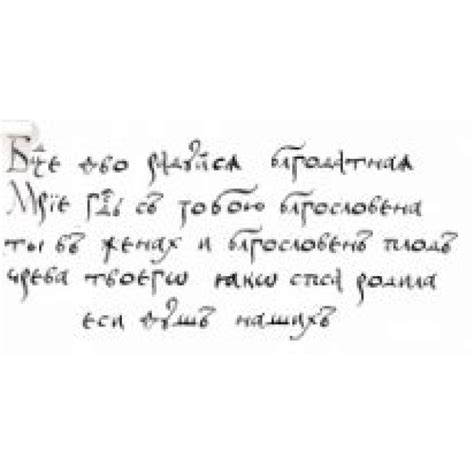 Бцⷣе дво радуйсѧ блгодатнаѧ
Мрїе гдⷭь съ тобою блгословена
ты въ женах и блгословенъ плодъ
чрева твоегѡ ꙗкѡ спса родила
еси душъ нашихъ